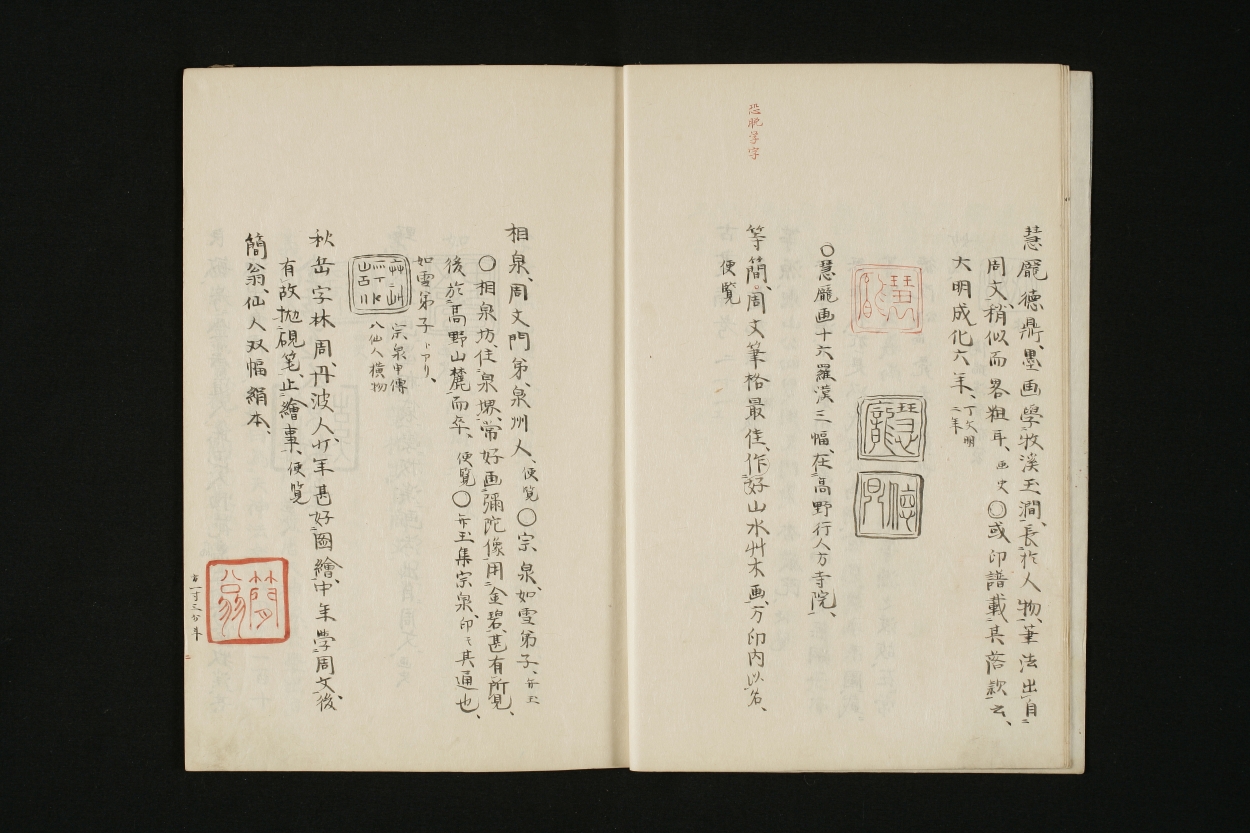 慧龎徳鼎、墨画學牧溪玉澗、長於人物、筆法出自二
周文、稍似而畧粗耳、画史〇或印譜載其落款云、
大明成化六年、丁文明
二年
慧龎
慧龎
徳鼎
〇慧龎画十六羅漢三幅、在高野行人方寺院、
恐肥学字
等簡、周文筆格最佳、作好山水艸木画、方印内以名、
便覧
相泉、周文門弟、泉州人、便覧〇宗泉、如雪弟子、弁玉
〇相泉坊、住泉堺、常好画彌陀像用金碧、甚有所見、
後於高野山麓而卒、便覧〇弁玉集宗泉印ト其通也、
如雪弟子トアリ、
宗泉申傳
八仙人横物
秋岳字林周、丹波人、少年甚好圖繪、中年学周文、後
有故抛硯笔、止繪事、便覧
簡翁、仙人双幅絹本、
簡翁
方一寸三分半